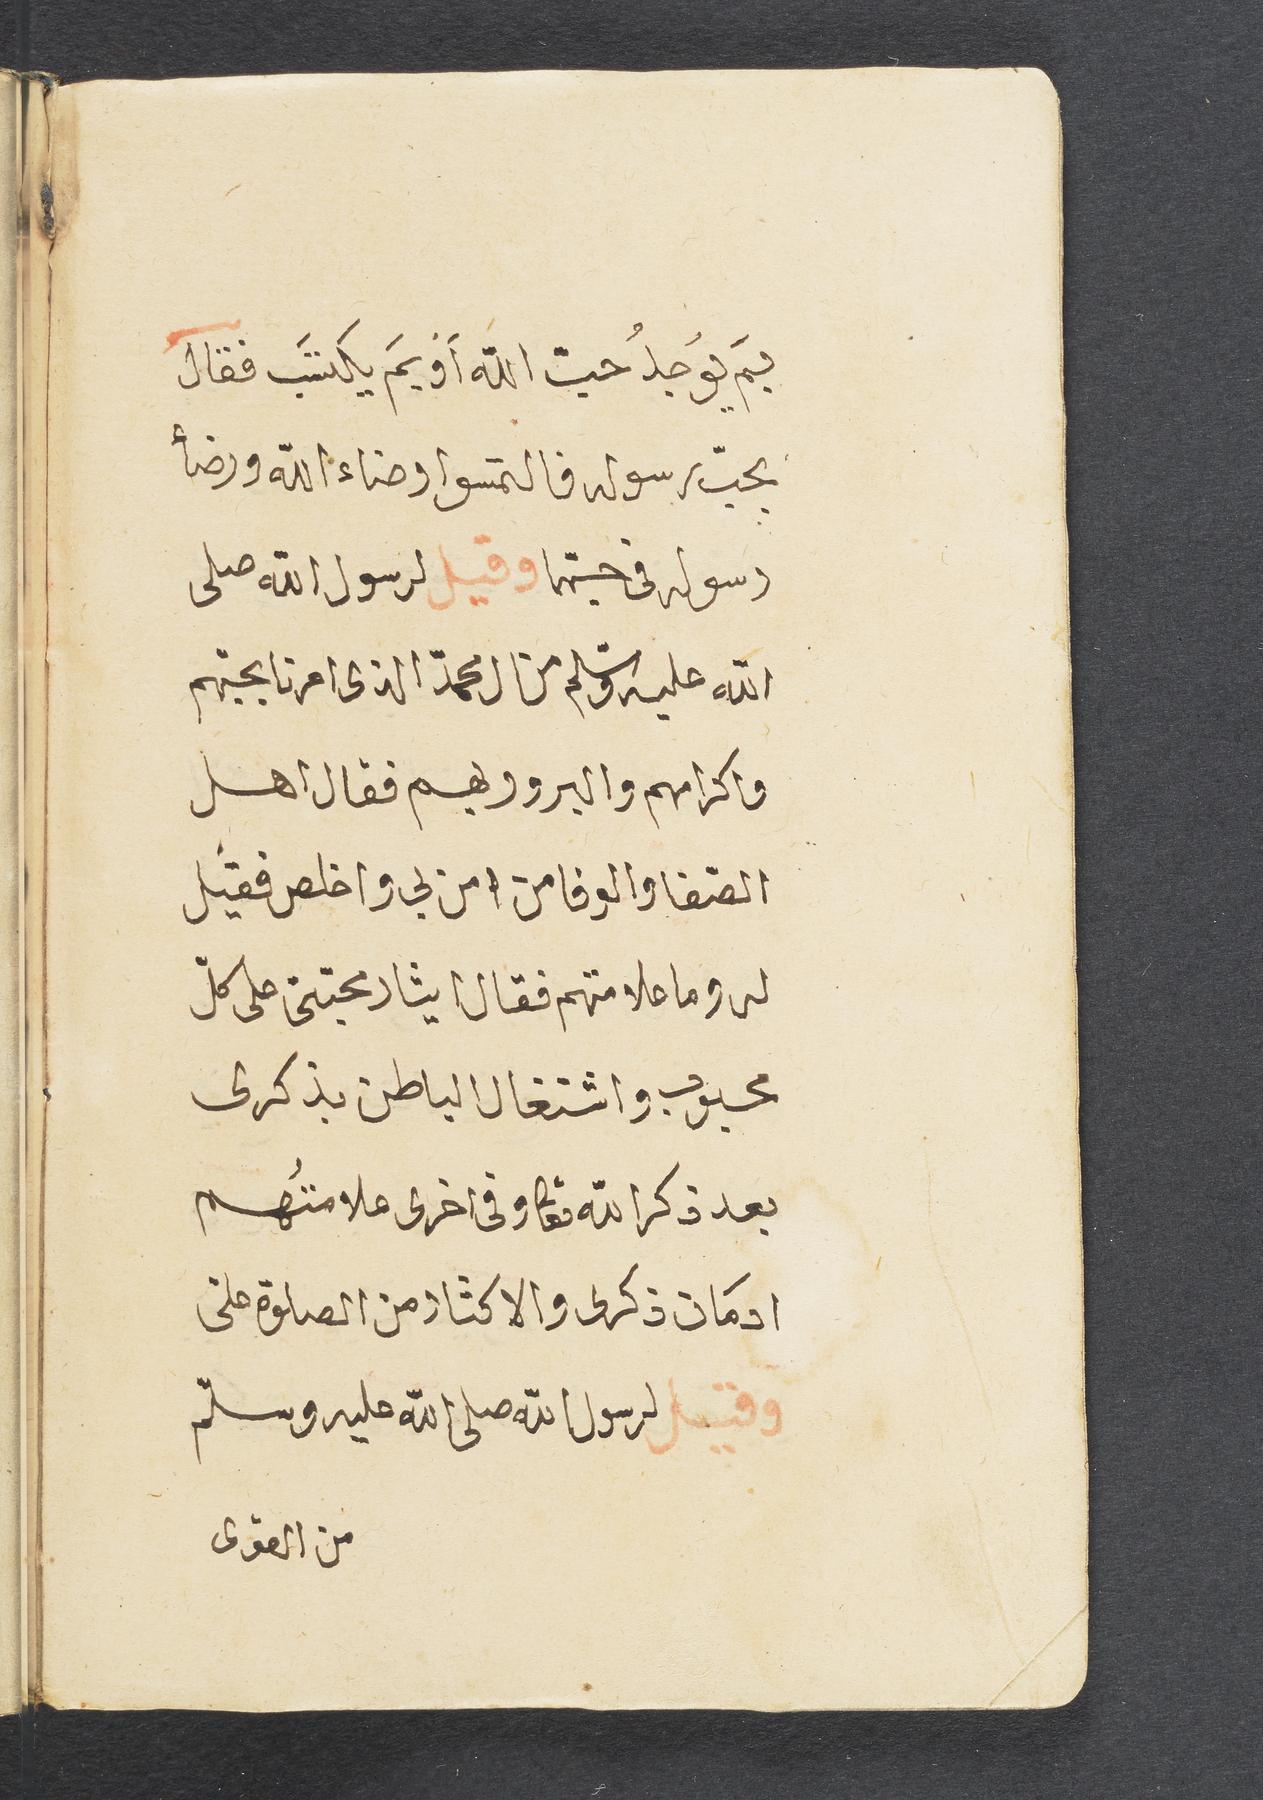 بِمَ يُوجَدُ حبّ الله اَوْ بِمَ يكتسَب فقال
بحبّ رسوله فالتمسوا رضاء الله ورضأ
رسوله فى حبّهما وقيل لرسول الله صلى
الله عليه وسّلم من ال محمدّ الذى امرنا بحبّهم
واكرامهم والبرور بهم فقال اهل
الصّفا والوفا من امن بي واخلص فقيل
له وما علامتهم فقال ايثار محبّتى على كلّ
محبوب واشتغال الباطن بذكرى
بعد ذكر الله تعا وفى اخرى علامتُهم
ادمَان ذكرى والاكثار من الصلوة علىّ
وقيل لرسول الله صلى الله عليه وسلّم
من القوى